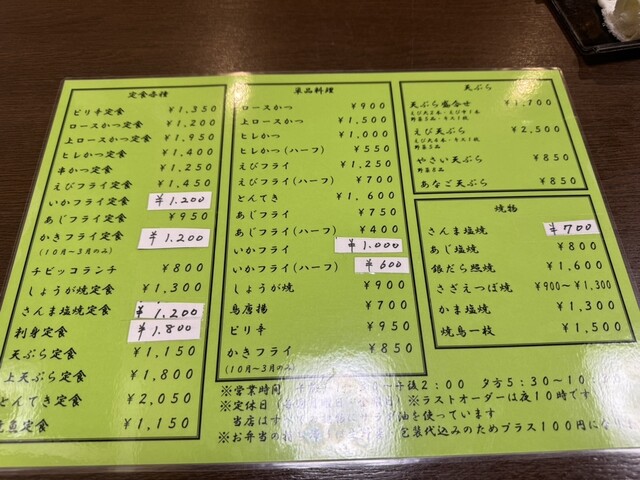 定食各種
ピリ辛定食 ¥1,350
ロースかつ定食 ¥1,200
上ロースかつ定食 ¥1,950
ヒレかつ定食 ¥1,400
串かつ定食 ¥1,250
えびフライ定食 ¥1,450
いかフライ定食 ¥1.200
あじフライ定食 ¥950
かきフライ定食 ¥1.200
(10月～3月のみ)
チビッコランチ ¥800
しょうが焼定食 ¥1,300
さんま塩焼定食 ¥1,200
刺身定食 ¥1.800
天ぷら定食 ¥1,150
上天ぷら定食 ¥1,800
とんてき定食 ¥2,050
定食 ¥1,150
単品料理
ロースかつ ¥900
上ロースかつ ¥1,500
ヒレかつ ¥1,000
ヒレかつ(ハーフ) ¥550
えびフライ ¥1,250
えびフライ(ハーフ) ¥700
とんてき ¥1,600
あじフライ ¥750
あじフライ(ハーフ) ¥400
いかフライ ¥1.000
いかフライ(ハーフ) ¥600
しょうが焼 ¥900
鳥唐揚 ¥700
ピリ辛 ¥950
かきフライ ¥850
(10月～3月のみ)
天ぷら
天ぷら盛合せ ¥1,700
えび天ぷら ¥2,500
野菜3品
やさい天ぷら ¥850
野菜8品
あなご天ぷら ¥850
焼物
さんま塩焼 ¥700
あじ塩焼 ¥800
銀だら照焼 ¥1,600
さざえつぼ焼 ¥900～¥1,300
かま塩焼 ¥1,300
焼鳥一枝 ¥1,500
※営業時間 午後2:00 夕方5:30～10:
※定休日 ※ラストオーダーは夜10時です
当店は 油を使っています
※お弁当の 包装代込みのためプラス100円に